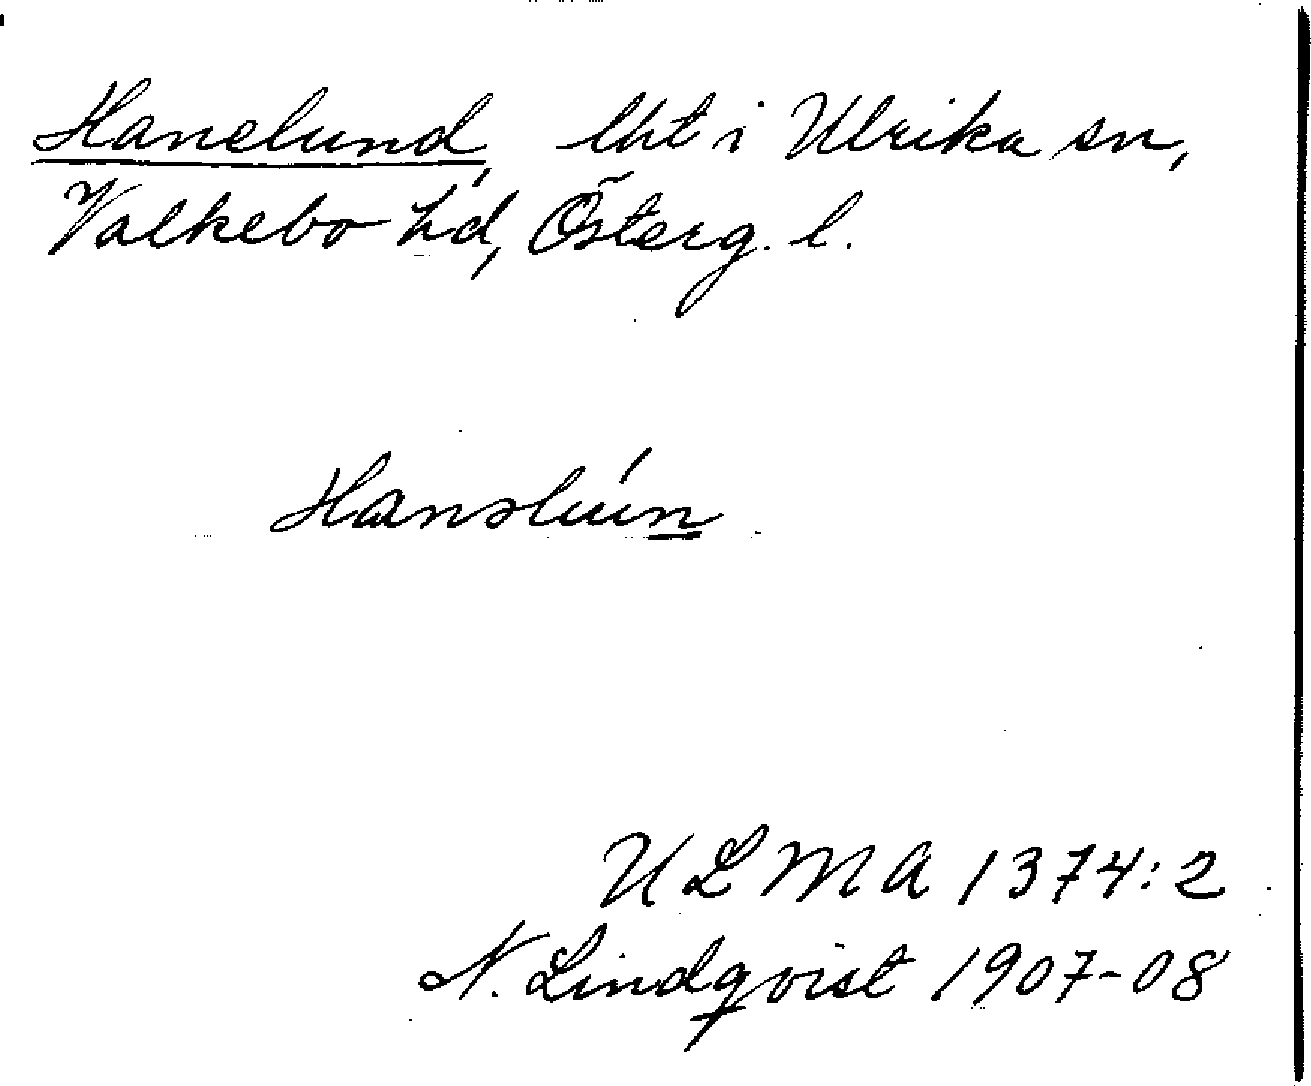 Hanelund, lht i Ulrika sn,
Valkebo hd, Österg. l.
Hanslún
ULMA 1374:2
N. Lindqvist 1907-08